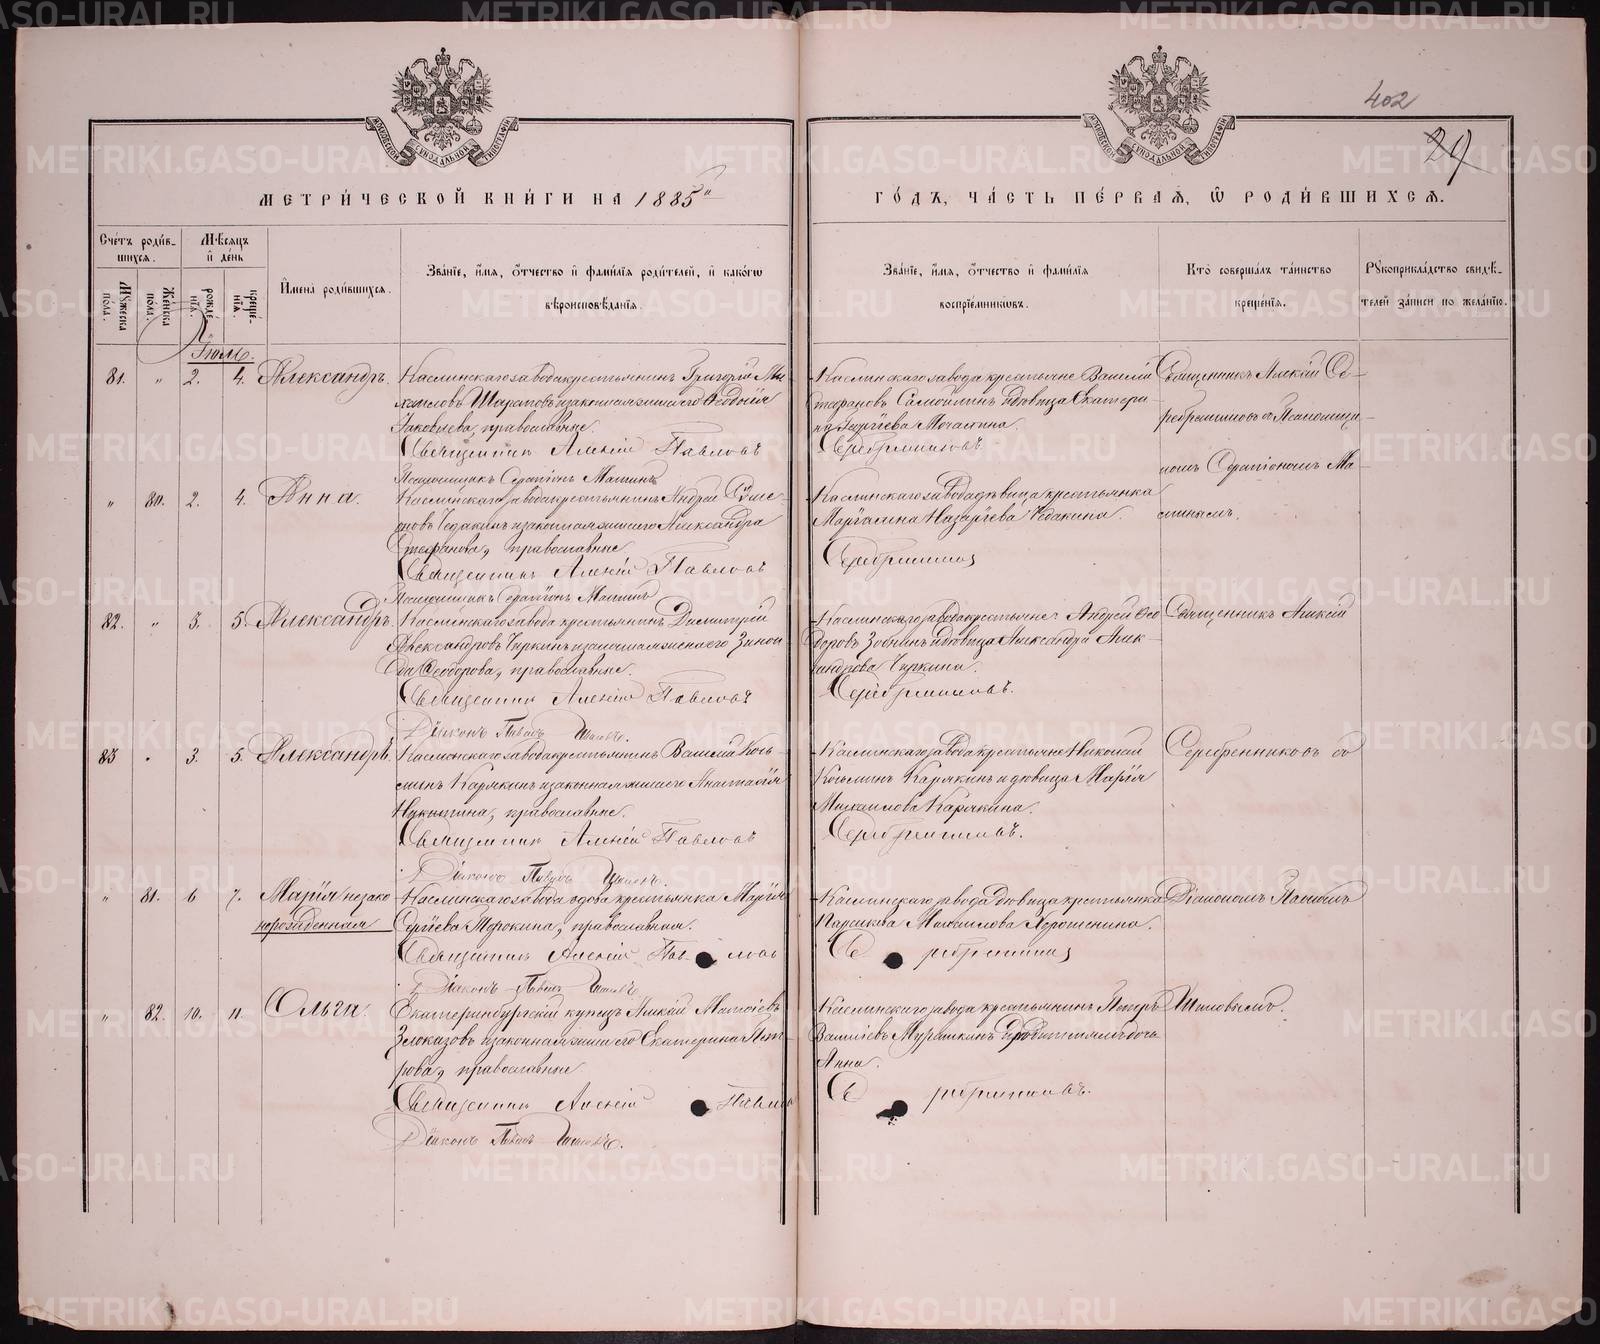 402
29
МЕТРИ́ЧЕСКОЙ КНИ́ГИ НА 1885
ГО́ДЪ, ЧА́СТЬ ПЕ́РВАЯ, Ѿ РОДИ́ВШИХСЯ.
Сче́тъ роди́в-
шихся.
Мѣсяцъ
и҆ де́нь
Мꙋжеска
пола.
Женска
пола.
рожде
нїѧ.
креще́-
нїѧ.
И҆мена̀ роди́вшихсѧ.
Зва́нїе, и҆́мѧ, ѻ҆́тчество и҆ фами́лїѧ роди́телей, и҆ како́гѡ
вѣроисповѣ́данїѧ.
Зва́нїе, и҆́мѧ, ѻ҆́тчество и҆ фами́лїѧ
воспрїе́мникѡвъ.
Кто̀ соверша́лъ та́инство
креще́нїѧ.
Рꙋкоприкла́дство свидѣ́-
телей за́писи по жела́нїю.
Іюль.
81. " 2. 4. Александръ.
Каслинскаго завода крестьянинъ Григорій Ми-
хаиловъ Шараповъ и законная жена его Ѳеодосія
Іаковлева, православные.
Священникъ Алексій Павловъ
Псаломщикъ Серапіонъ Маминъ
Каслинскаго завода крестьяне Василій
Стефановъ Самойлинъ и девица Екатери-
на Георгіева
Серебренниковъ
Священникъ Алексій Се-
ребренниковъ съ Псаломщи-
комъ Серапіономъ Ма-
минымъ.
" 80. 2. 4. Анна.
Каслинскаго завода крестьянинъ Андрей
и законная жена его Александра
Стефанова, православные
Священникъ Алексій Павловъ
Псаломщикъ Серапіонъ Маминъ
Каслинскаго завода девица крестьянка
Назаріева Чедакина.
82. " 3. 5. Александръ.
Каслинскаго завода крестьянинъ Димитрій
Александровъ Чуркинъ и законная жена его Зинаи-
да Ѳеодорова, православные.
Священникъ Алексій Павловъ
Діаконъ
Каслинскаго завода крестьяне Андрей Ѳео
доровъ Зобнинъ и девица Александра Алек-
сандрова Чуркина.
Серебренниковъ.
Священникъ Алексій
83 " 3. 5. Александръ.
Каслинскаго завода крестьянинъ Василій Козь-
минъ Карякинъ и законная жена его Анастасія
Никитина, православные.
Священникъ Алексій Павловъ
Діаконъ
Каслинскаго завода крестьяне Николай
Козьминъ Карякинъ и девица Марія
Михаилова Карякина.
Серебренниковъ.
Серебренниковъ со
" 81. 6 7. Марія незако
норожденная
Каслинскаго завода вдова крестьянка Марія
Сергіева Торокина, православная.
Священникъ Алексій Павловъ
Діаконъ
Каслинскаго завода девица крестьянка
Михаилова Хорошенина.
Діакономъ Павломъ
" 82. 10. 11. Ольга.
Екатеринбургскій купецъ Алексій Матѳіевъ
Злоказовъ и законная жена его Екатерина Пет-
рова, православные
Священникъ Алексій Павловъ
Діаконъ
Каслинскаго завода крестьянинъ Петръ
Василіевъ Мурашкинъ и дочь
Анна.
Серебренниковъ.
Шиловымъ.